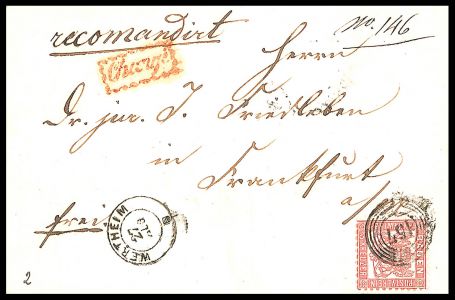 recomandirt
No. 146
Herrn
Charg.
Dr. jur. J. Friedleben
in
Frankfurt
a/M
frei
WERTHEIM
27
2